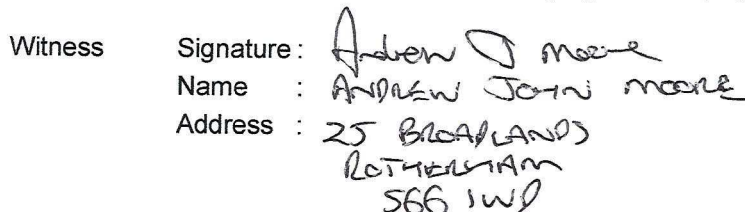 Witness Signature: Andrew J Moore
Name : ANDREW JOHN MOORE
Address : 25 BROADLANDS
ROTHERHAM
S66 1WD